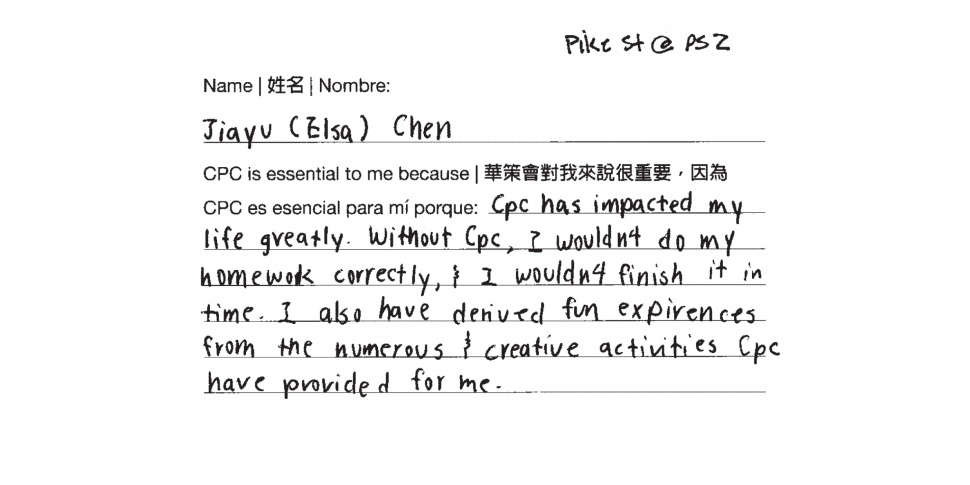 Pike St @ PS2
Name | 姓名 | Nombre:
Jiayu (Elsa) Chen
CPC is essential to me because | 華策會對我來說很重要，因為
CPC es esencial para mí porque: Cpc has impacted my
life greatly. Without Cpc, I wouldn't do my
homewok correctly, & I wouldn't finish it in
time. I also have derived fun expirences
from the numerous & creative activities Cpc
have provided for me.